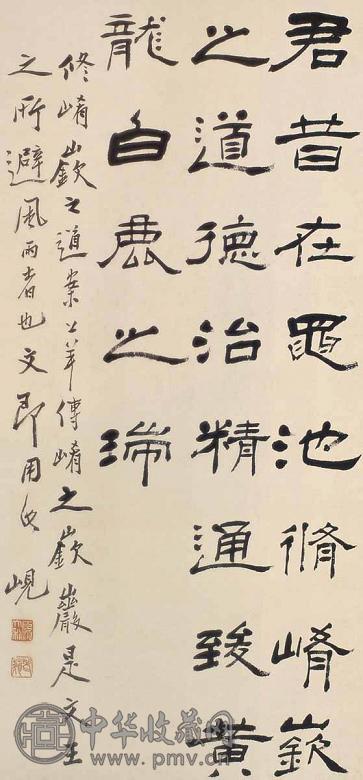 君昔在黽池脩崤嶔
之道德治精通致黃
龍白鹿之瑞
修崤嶔之道案公羊傳崤之嶔巖是文王
之所避風雨者也文即用此 峴
中华收藏网
www.pmv.com